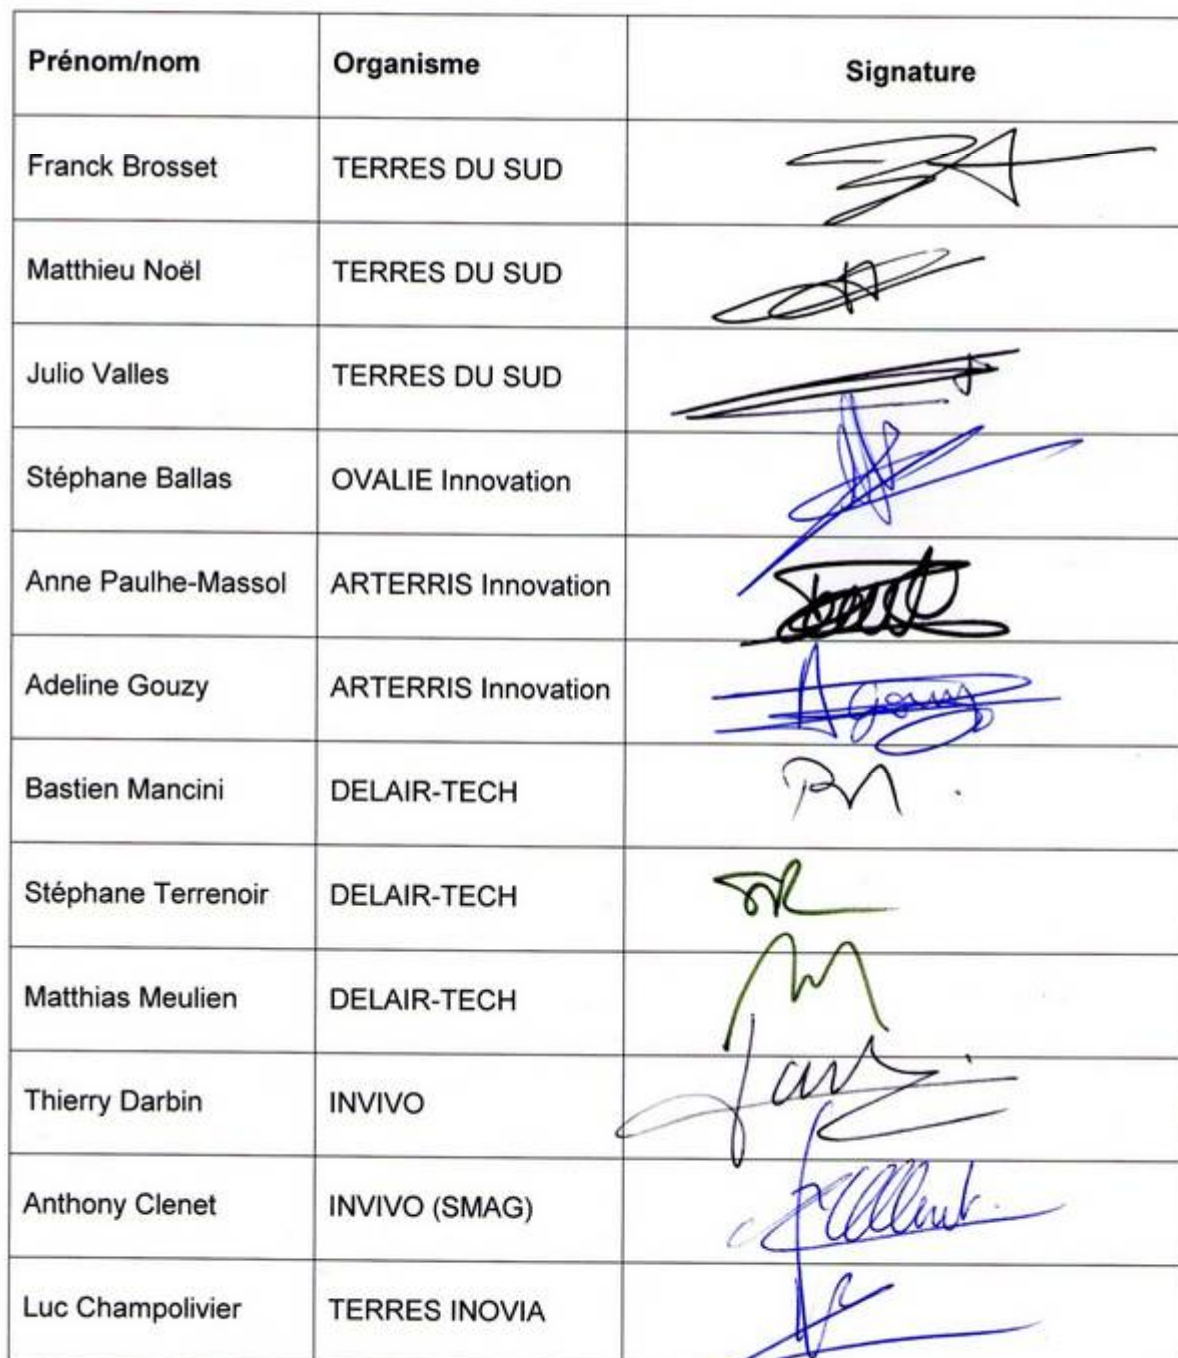 Prénom/nom Organisme Signature
Franck Brosset TERRES DU SUD
Matthieu Noël TERRES DU SUD
Julio Valles TERRES DU SUD
Stéphane Ballas OVALIE Innovation
Anne Paulhe-Massol ARTERRIS Innovation
Adeline Gouzy ARTERRIS Innovation
Bastien Mancini DELAIR-TECH
Stéphane Terrenoir DELAIR-TECH
Matthias Meulien DELAIR-TECH
Thierry Darbin INVIVO
Anthony Clenet INVIVO (SMAG)
Luc Champolivier TERRES INOVIA